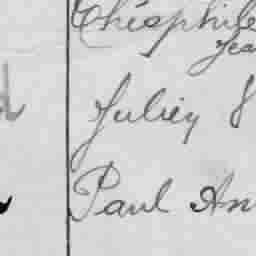 Théophile
Jea
Juliey
Paul An